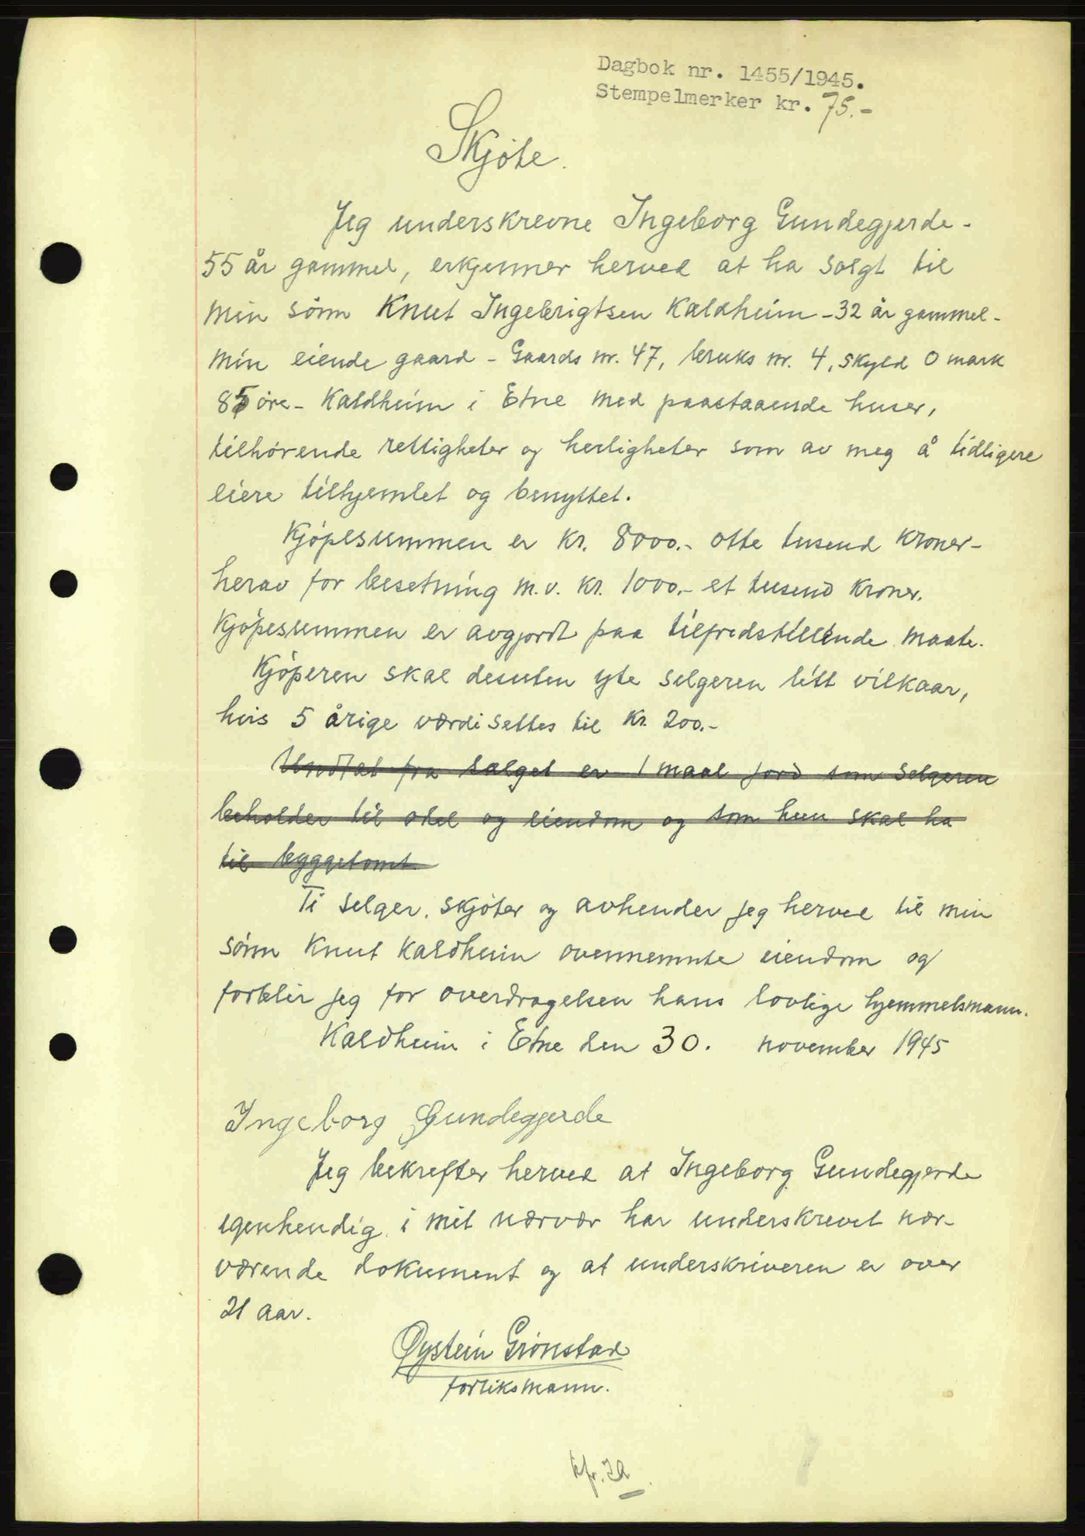 Dagbok nr. 1455/1945.
Stempelmerker kr. 75.-
Skjøte.
Jeg underskrevne Ingeborg Gundegjerde -
55 år gammel, erkjenner herved at ha solgt til
min sønn Knut Ingebrigtsen Kaldheim - 32 år gammel -
min eiende gaard - Gaards nr. 47, bruks nr. 4, skyld 0 mark
85 øre - Kaldheim i Etne med paastaaende huser,
tilhørende rettigheter og herligheter som av meg å tidligere
eiere tilhjemlet og benyttet.
Kjøpesummen er Kr. 8000.- otte tusend kroner -
herav for besetning m.v. kr. 1000.- et tusend kroner.
Kjøpesummen er avgjordt paa tilfredstillende maate.
Kjøperen skal desuten yte selgeren litt vilkaar,
hvis 5 årige værdi settes til Kr. 200.-
Undtat fra salget er 1 maal jord som selgeren
beholder til odel og eiendom og som hun skal ha
til byggetomt.
Ti selger, skjøter og avhender jeg herved til min
sønn Knut Kaldheim ovennemnte eiendom og
forblir jeg for overdragelsen hans lovlige hjemmelsmann.
Kaldheim i Etne den 30. november 1945
Ingeborg Gundegjerde
Jeg bekrefter herved at Ingeborg Gundegjerde
egenhendig i mit nærvær har underskrevet nær-
værende dokument og at underskriveren er over
21 aar.
Øystein Grønstad
forliksmann.